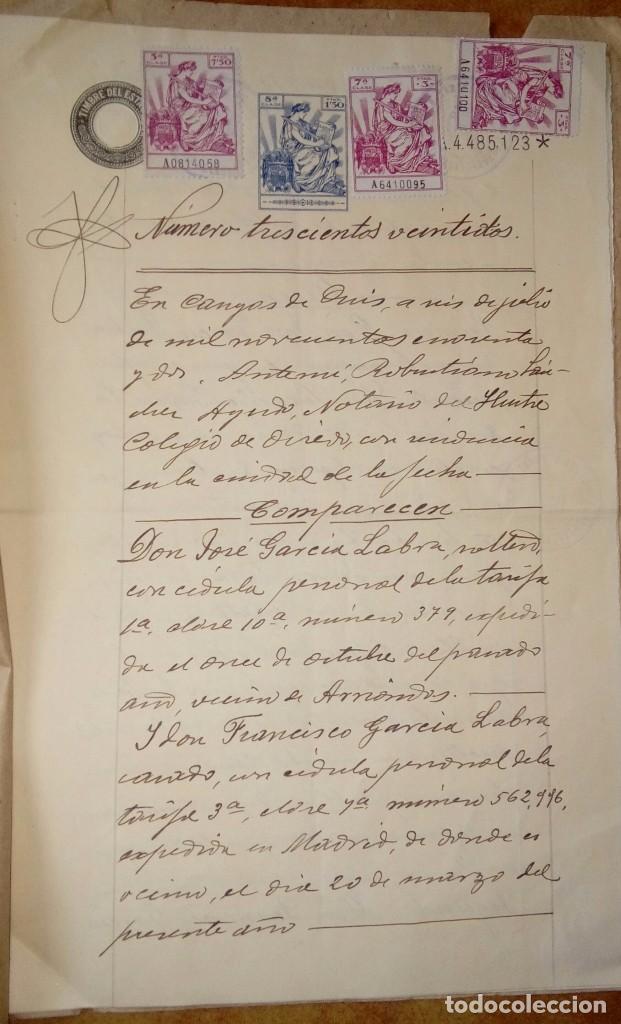 TIMBRE DEL ESTADO
5ª CLASE PTAS. 7'50
A0814058
8ª CLASE PTAS. 1'50
7ª CLASE PTAS. 3
A6410095
7ª CLASE 3
A6410100
A.4.485.123 *
Número trescientos veintidos.
En Cangas de Onís, a seis de julio
de mil novecientos cuarenta
y dos. Ante mí, Robustiano Sán-
chez Agudo, Notario del Ilustre
Colegio de Oviedo, con residencia
en la ciudad de la fecha
Comparecen
Don José García Labra, soltero,
con cédula personal de la tarifa
1ª, clase 10ª, número 379, expedi-
da el once de octubre del pasado
año, vecino de Arriondas.
Y don Francisco García Labra,
casado, con cédula personal de la
tarifa 3ª, clase 9ª número 562,996,
expedida en Madrid, de donde es
vecino, el dia 20 de marzo del
presente año
todocoleccion